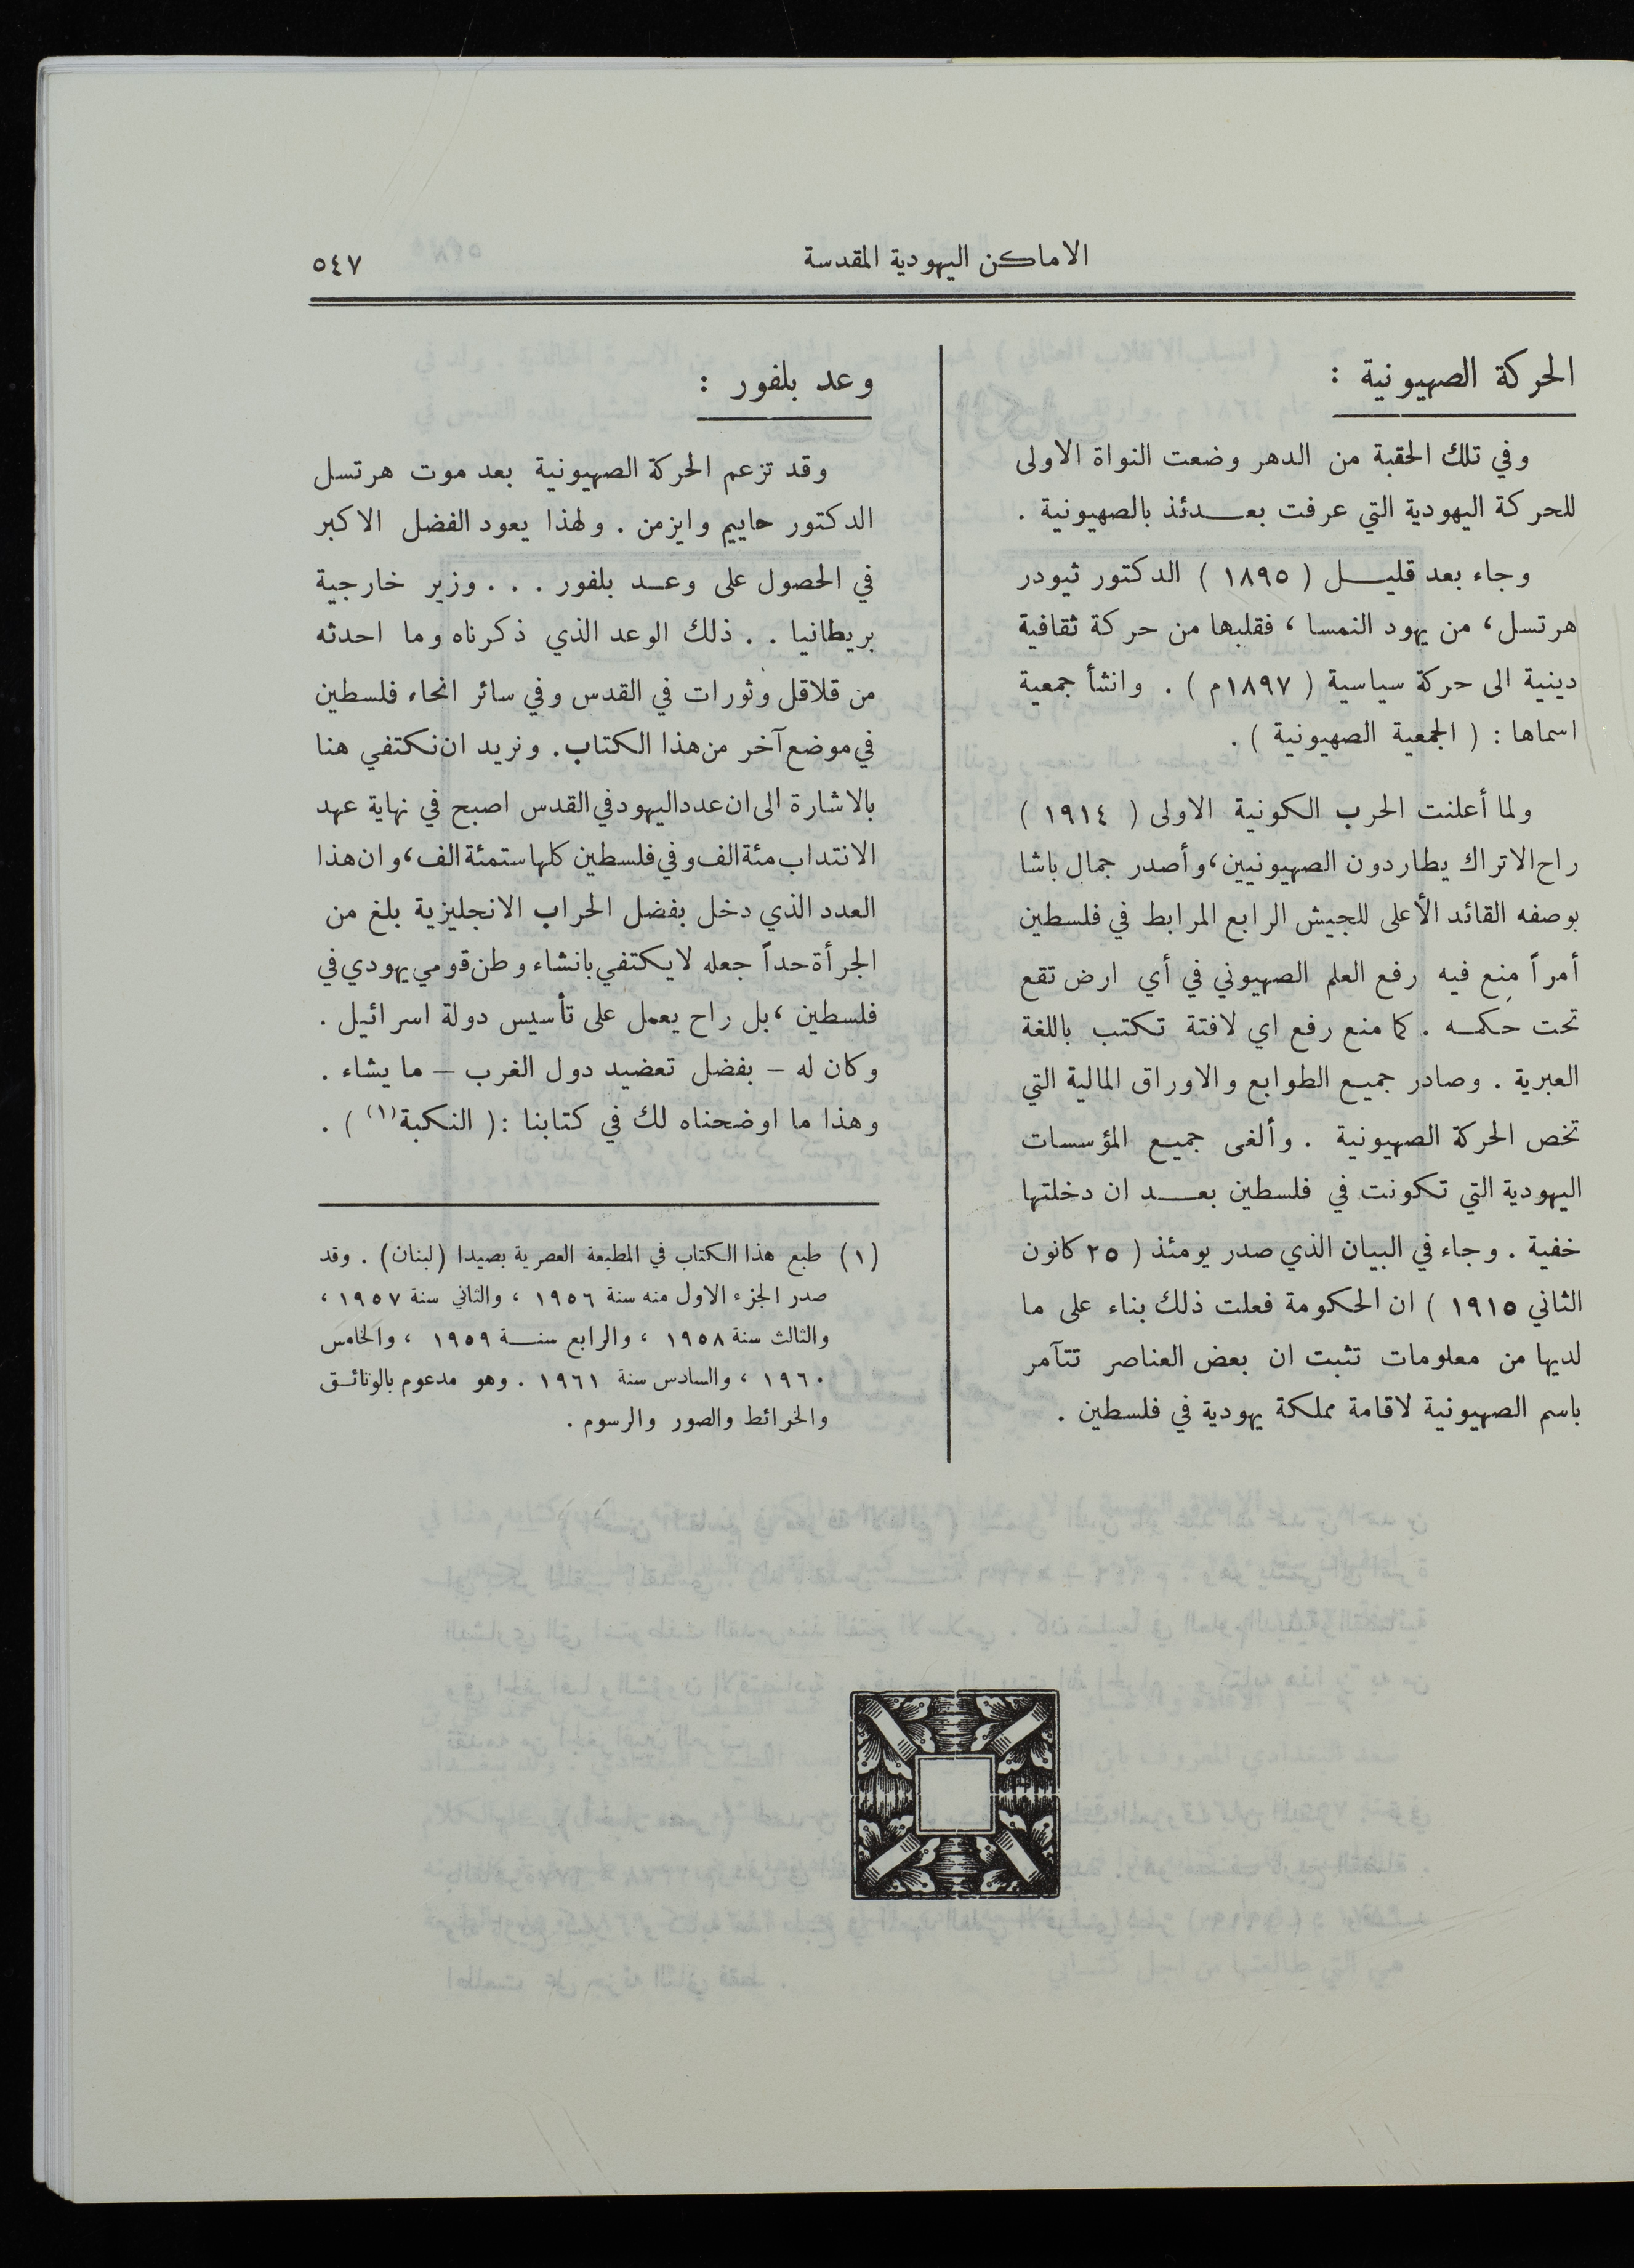 الاماكن اليهودية المقدسة
٥٤٧
الحركة الصهيونية :
وفي تلك الحقبة من الدهر وضعت النواة الاولى
للحركة اليهودية التي عرفت بعـــدئذ بالصهيونية .
وجاء بعد قليـــل ( ١٨٩٥ ) الدكتور ثيودر
هرتسل، من يهود النمسا ، فقلبها من حركة ثقافية
دينية الى حركة سياسية ( ١٨٩٧م ) . وانشأ جمعية
اسماها : ( الجمعية الصهيونية ) .
ولما أعلنت الحرب الكونية الاولى ( ١٩١٤ )
راح الاتراك يطاردون الصهيونيين، وأصدر جمال باشا
بوصفه القائد الأعلى للجيش الرابع المرابط في فلسطين
أمراً منع فيه رفع العلم الصهيوني في أي ارض تقع
تحت حكمـه . كما منع رفع اي لافتة تكتب باللغة
العبرية . وصادر جميع الطوابع والاوراق المالية التي
تخص الحركة الصهيونية . وألغى جميع المؤسسات
اليهودية التي تكونت في فلسطين بعـــد ان دخلتها
خفية . وجاء في البيان الذي صدر يومئذ ( ٢٥ كانون
الثاني ١٩١٥ ) ان الحكومة فعلت ذلك بناء على ما
لديها من معلومات تثبت ان بعض العناصر تتآمر
باسم الصهيونية لاقامة مملكة يهودية في فلسطين .
وعد بلفور :
وقد تزعم الحركة الصهيونية بعد موت هرتسل
الدكتور حاييم وايزمن . ولهذا يعود الفضل الاكبر
في الحصول على وعـد بلفور . . . وزير خارجية
بريطانيا . . ذلك الوعد الذي ذكرناه وما احدثه
من قلاقل وثورات في القدس وفي سائر انحاء فلسطين
في موضع آخر من هذا الكتاب. ونريد ان نكتفي هنا
بالاشارة الى ان عدد اليهود في القدس اصبح في نهاية عهد
الانتداب مئة الف وفي فلسطين كلها ستمئة الف، وان هذا
العدد الذي دخل بفضل الحراب الانجليزية بلغ من
الجرأة حداً جعله لا يكتفي بانشاء وطن قومي يهودي في
فلسطين ، بل راح يعمل على تأسيس دولة اسرائيل .
وكان له – بفضل تعضيد دول الغرب – ما يشاء .
وهذا ما اوضحناه لك في كتابنا : ( النكبة(١) ) .
(١) طبع هذا الكتاب في المطبعة العصرية بصيدا (لبنان) . وقد
صدر الجزء الاول منه سنة ١٩٥٦ ، والثاني سنة ١٩٥٧ ،
والثالث سنة ١٩٥٨ ، والرابع سنـــة ١٩٥٩ ، والخامس
١٩٦٠ ، والسادس سنة ١٩٦١ . وهو مدعوم بالوثائـق
والخرائط والصور والرسوم .